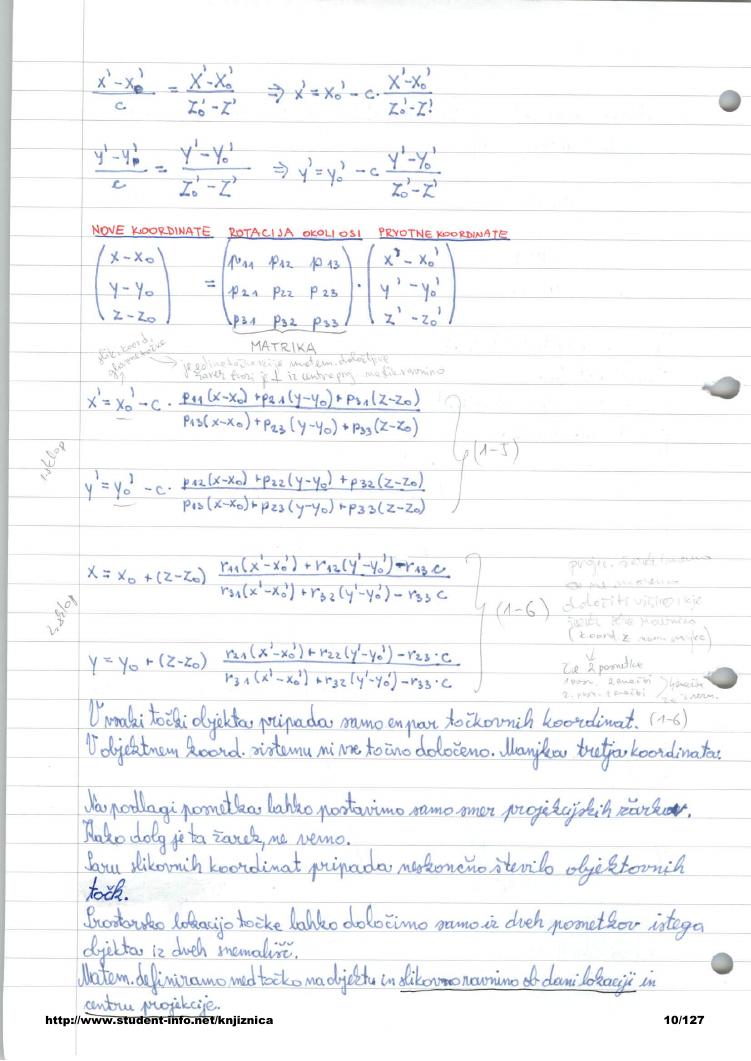 (x' - x₀')/c = (X' - X₀')/(Z₀' - Z') ⇒ x' = x₀' - c · (X' - X₀')/(Z₀' - Z')
(y' - y₀')/c = (Y' - Y₀')/(Z₀' - Z') ⇒ y' = y₀' - c (Y' - Y₀')/(Z₀' - Z')
NOVE KOORDINATE ROTACIJA OKOLI OSI PRVOTNE KOORDINATE
(x - x₀) = (p11 p12 p13) · (x' - x₀')
(y - y₀) (p21 p22 p23) (y' - y₀')
(z - z₀) (p31 p32 p33) (z' - z₀')
MATRIKA
slik. koord.
x' = x₀' - c · (p11(x-x₀) + p21(y-y₀) + p31(z-z₀))/(p13(x-x₀) + p23(y-y₀) + p33(z-z₀))
(1-5)
y' = y₀' - c · (p12(x-x₀) + p22(y-y₀) + p32(z-z₀))/(p13(x-x₀) + p23(y-y₀) + p33(z-z₀))
x = x₀ + (z-z₀) (r11(x'-x₀') + r12(y'-y₀') - r13 c)/(r31(x'-x₀') + r32(y'-y₀') - r33 c)
(1-6)
določiti višine kje
(koord. z
za 2 posnetka
y = y₀ + (z-z₀) (r21(x'-x₀') + r22(y'-y₀') - r23·c)/(r31(x'-x₀') + r32(y'-y₀') - r33·c)
Vsaki točki objekta pripada samo en par točkovnih koordinat. (1-6)
V objektnem koord. sistemu ni vse točno določeno. Manjka tretja koordinata.
Na podlagi posnetka lahko postavimo samo smer projekcijskih žarkov.
Kako dolg je ta žarek, ne vemo.
Paru slikovnih koordinat pripada neskončno število objektovnih
točk.
Prostorsko lokacijo točke lahko določimo samo iz dveh posnetkov istega
objekta iz dveh snemališč.
Matem. definiramo med točko na objektu in slikovno ravnino ob dani lokaciji in
centru projekcije.
http://www.student-info.net/knjiznica 10/127